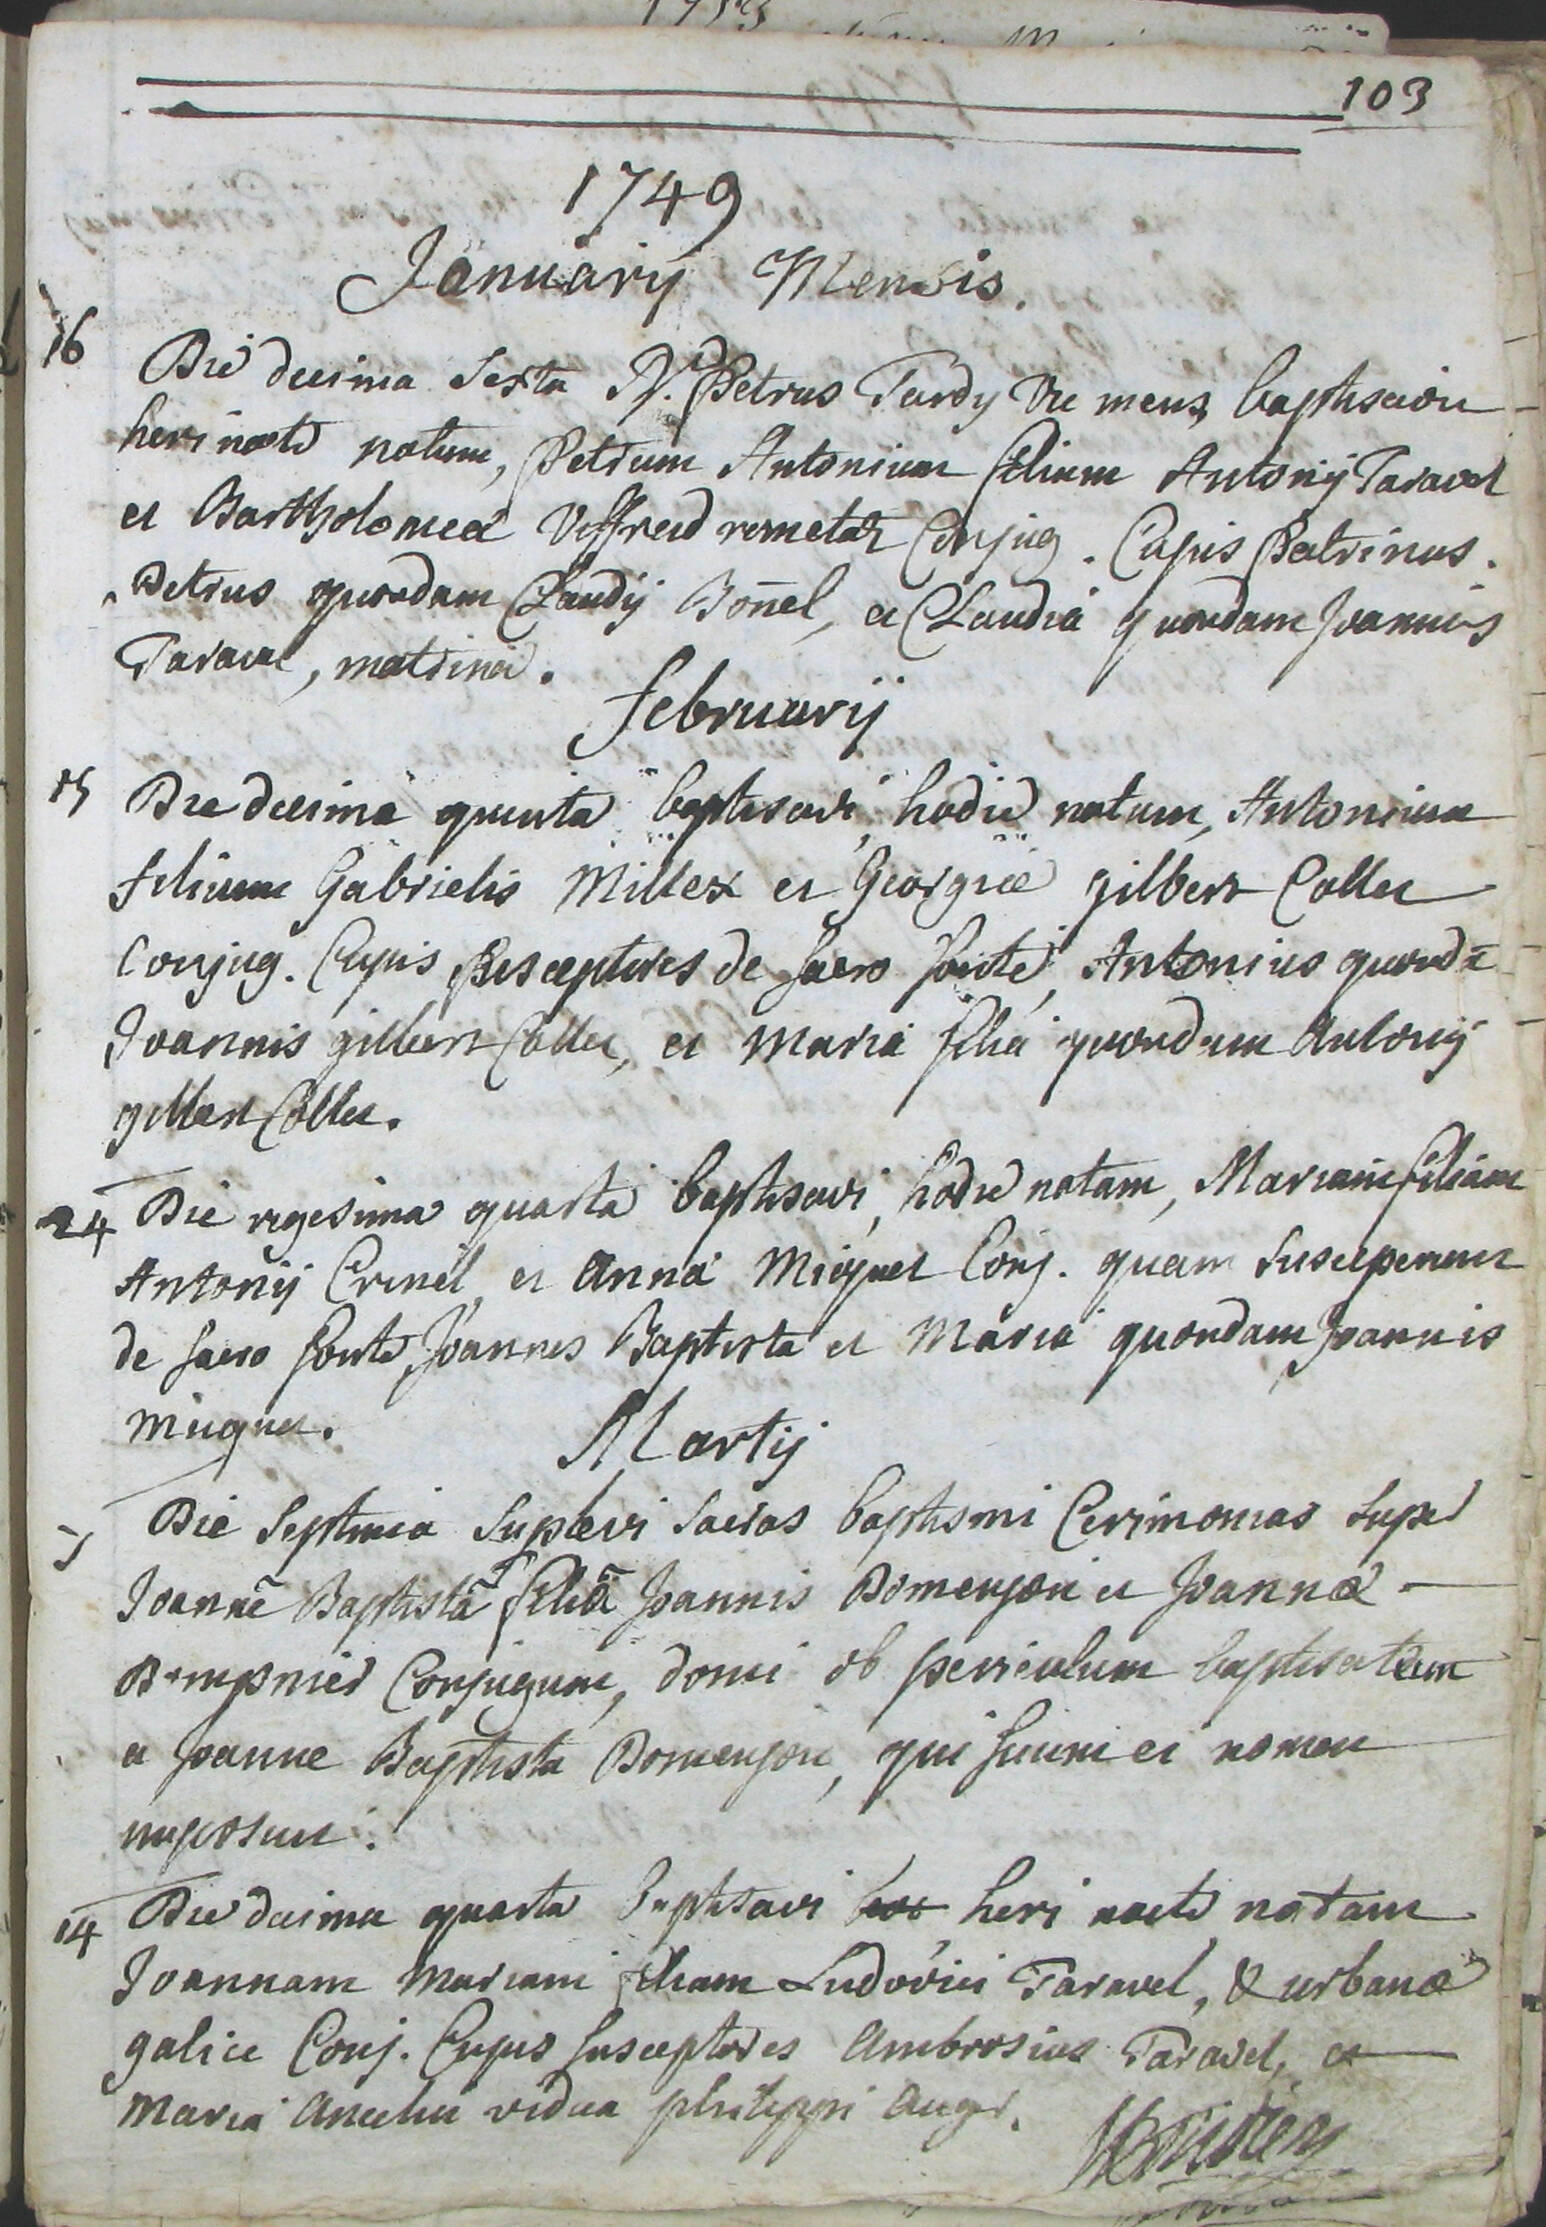 103
1749
Januarij Mensis.
16
Die decima Sexta R.d Petrus Tardy Vic meus baptisavit
heri nocte natum, Petrum Antonium filium Antonij Taravel
et Bartholomeæ Veffred Conjug. Cujus Patrinus.
Petrus quondam Claudij Boñel, et Claudia quondam Joannis
Taravel, matrina.
februarij
15
Die decima quinta baptisavi, hodie natum, Antonium
filium Gabrielis Millex et Georgiæ gilbert Collet
Conjug. Cujus Susceptores de sacro fonte, Antonius quondā
Joannis gilbert Collet, et Maria filia quondam Antonij
gilbert Collet.
24
Die vigesima quarta baptisavi, hodie natam, Mariam filiam
Antonij Crinel et Anna Miguet Conj. quam Susceperunt
de sacro fonte Joannes Baptista et Maria quondam Joannis
Miguet.
Martij
7
Die Septima Suplevi Sacras baptismi Cerimonias super
Joannē Baptistā filiū Joannis Domenjon et Joannæ
Dompnier Conjugum, domi ob periculum baptisatum
a Joanne Baptista Domenjon, qui suum ei nomen
imposuit.
14
Die decima quarta baptisavi heri nocte natam
Joannam Mariam filiam Ludovici Taravel, & urbanæ
galice Conj. Cujus Susceptores Ambrosius Taravel, et
Maria vidua philippi Auger.